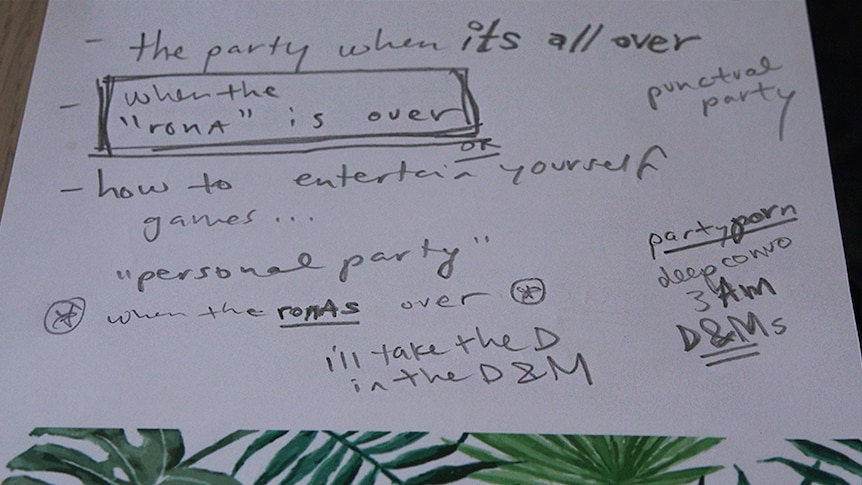 - the party when its all over
- when the
"ronA" is over
punctual
party
OR
- how to entertain yourself
games...
"personal party"
when the ronAs over
i'll take the D
in the D&M
partyporn
deep convo
3 AM
D&Ms